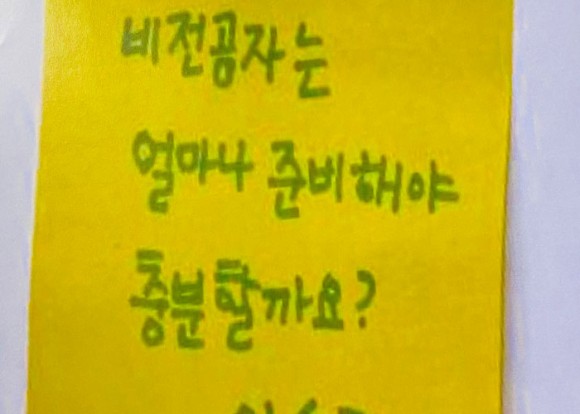 비전공자는
얼마나 준비해야
충분할까요?